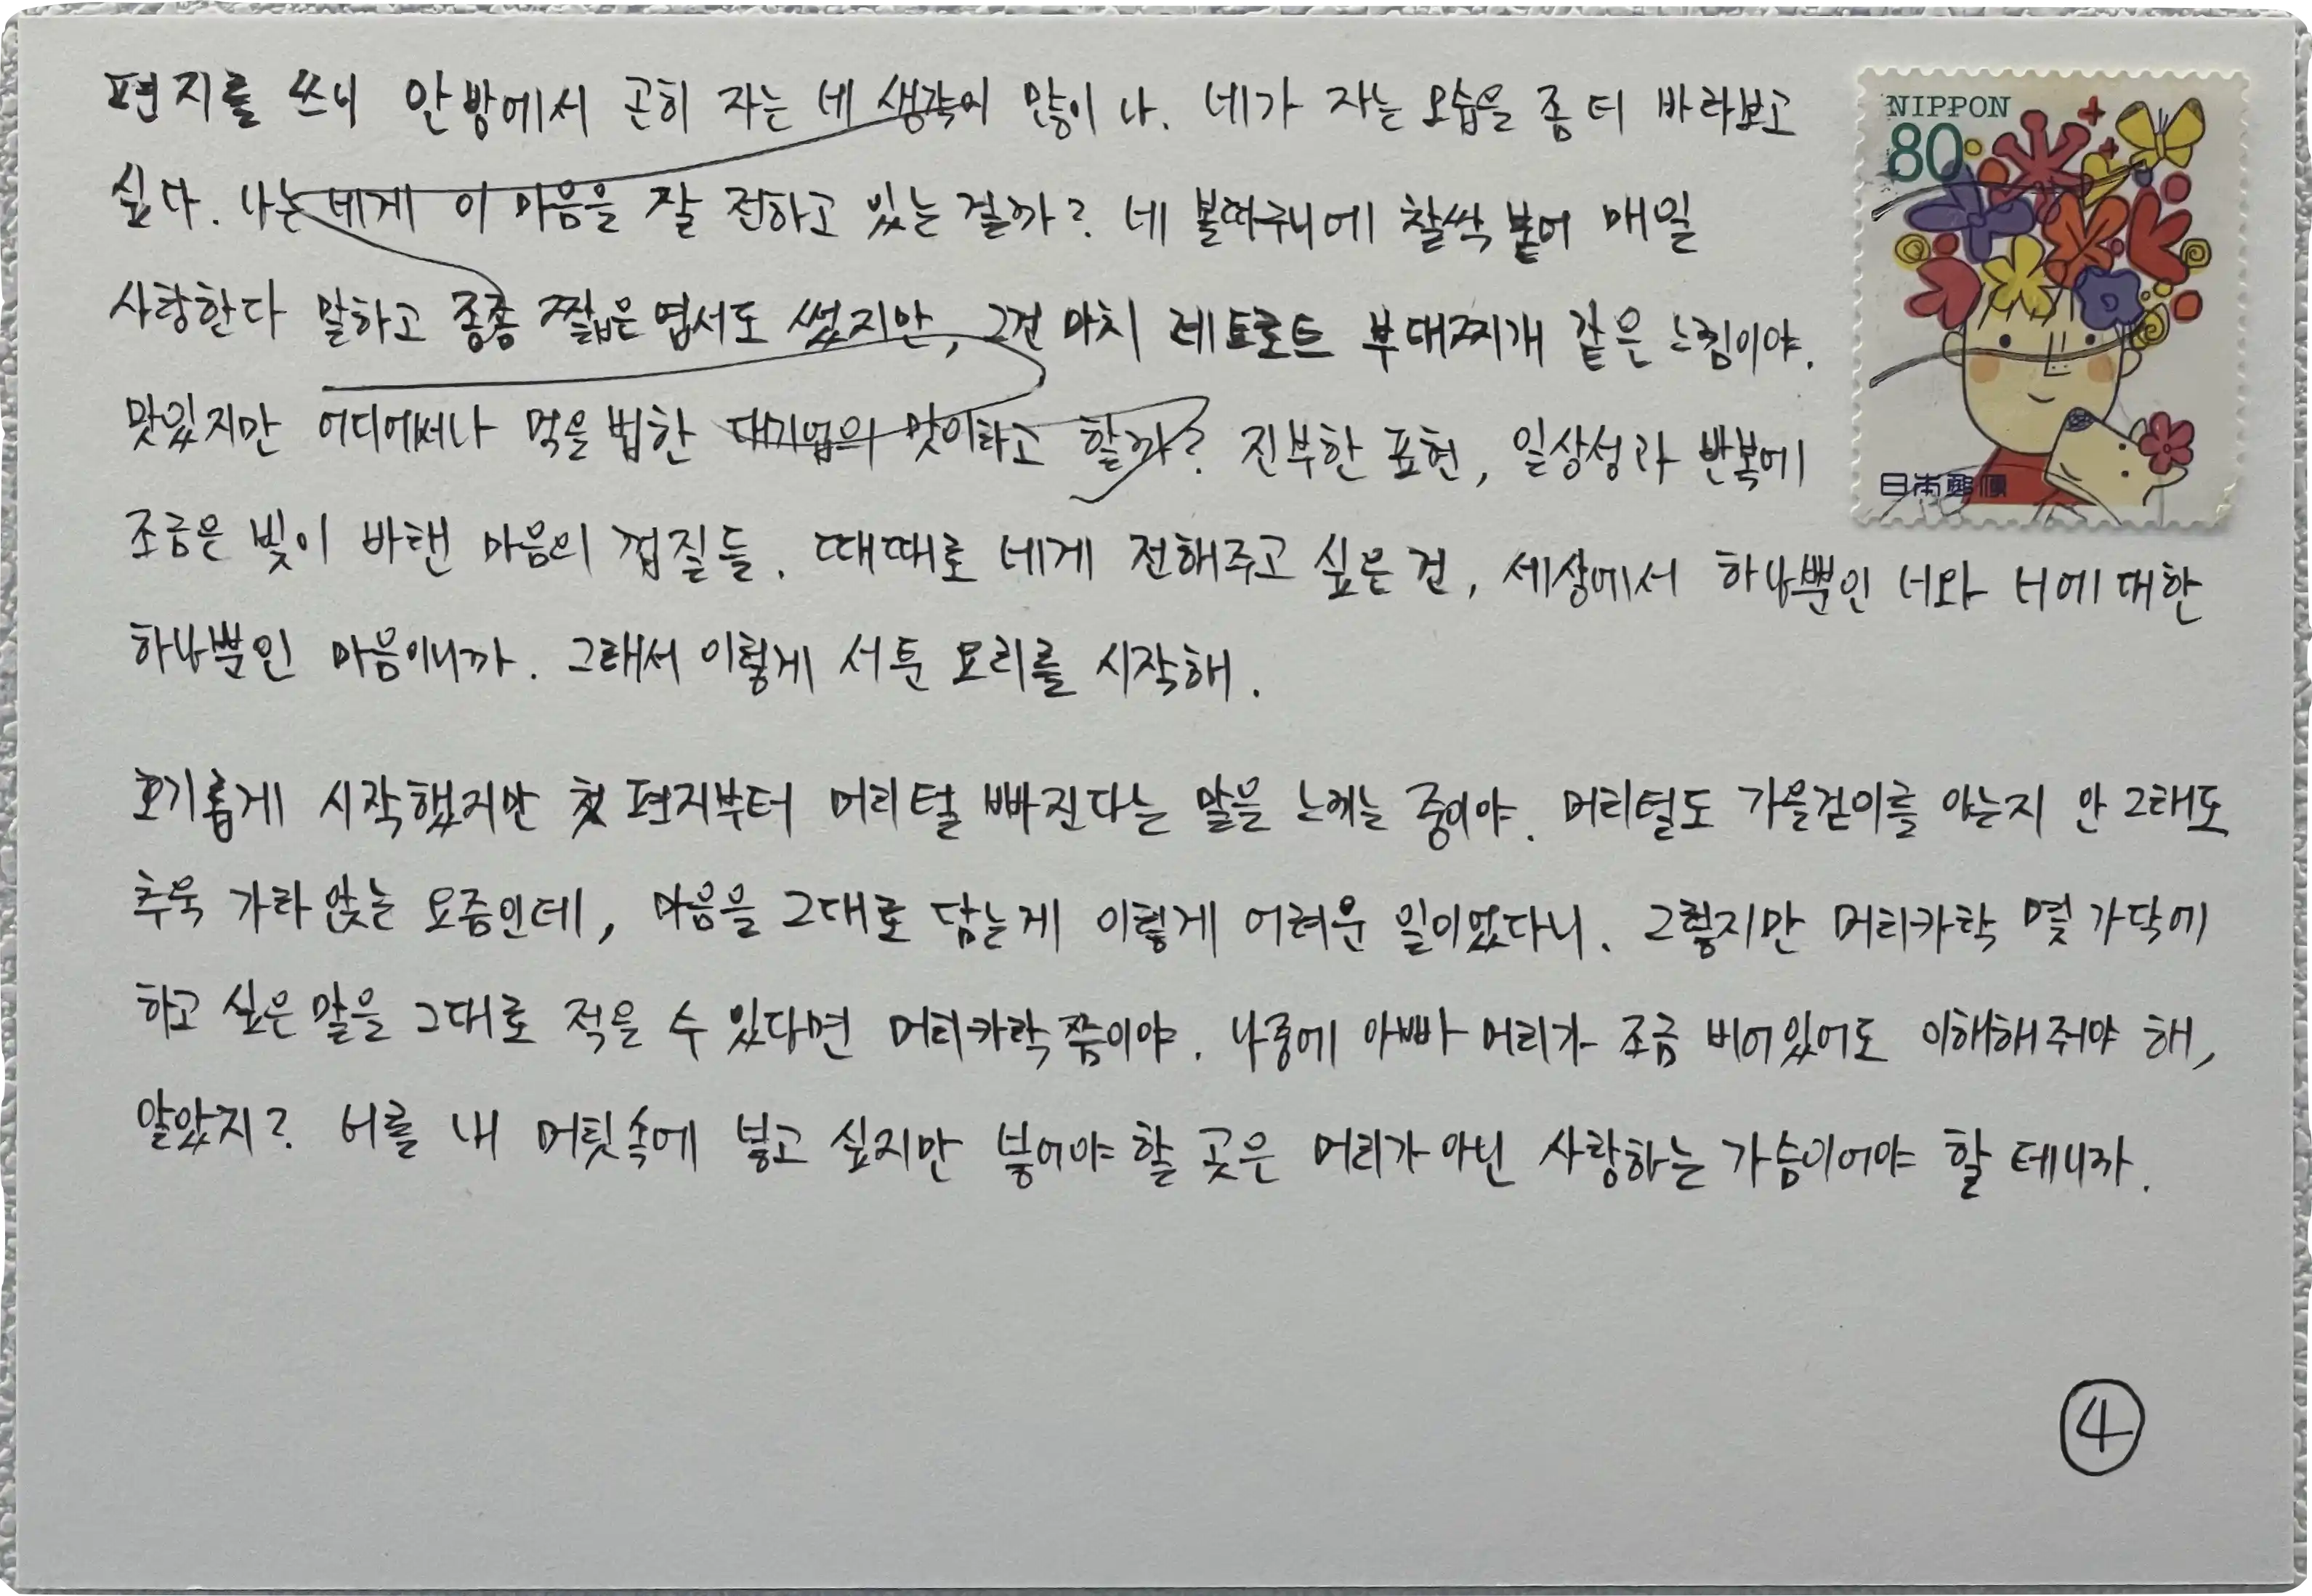 편지를 쓰니 안방에서 곤히 자는 네 생각이 많이 나. 네가 자는 모습을 좀 더 바라보고
싶다. 나는 네게 이 마음을 잘 전하고 있는 걸까? 네 볼따구니에 찰싹 붙어 매일
사랑한다 말하고 종종 짧은 엽서도 썼지만, 그건 마치 레토르트 부대찌개 같은 느낌이야.
맛있지만 어디에서나 먹을 법한 대기업의 맛이라고 할까? 진부한 표현, 일상성과 반복에
조금은 빛이 바랜 마음의 껍질들. 때때로 네게 전해주고 싶은 건, 세상에서 하나뿐인 너와 너에 대한
하나뿐인 마음이니까. 그래서 이렇게 서툰 요리를 시작해.
호기롭게 시작했지만 첫 편지부터 머리털 빠진다는 말을 느끼는 중이야. 머리털도 가을걷이를 아는지 안 그래도
추욱 가라앉는 요즘인데, 마음을 그대로 담는게 이렇게 어려운 일이었다니. 그렇지만 머리카락 몇 가닥에
하고 싶은 말을 그대로 적을 수 있다면 머리카락쯤이야. 나중에 아빠 머리가 조금 비어있어도 이해해줘야 해,
알았지? 너를 내 머릿속에 붛고 싶지만 붛어야 할 곳은 머리가 아닌 사랑하는 가슴이어야 할 테니까.
④
NIPPON
80
日本郵便